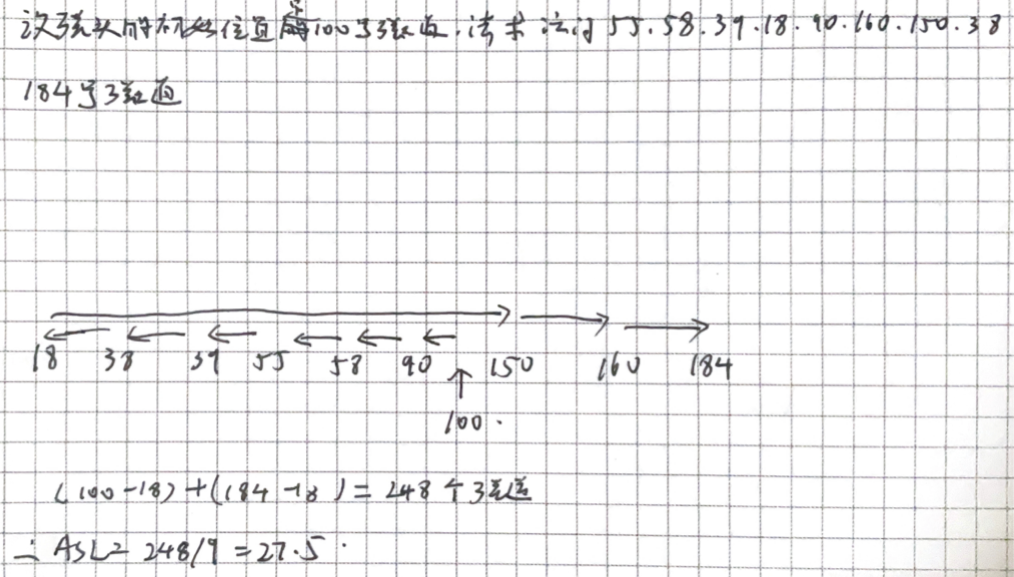 设磁头的初始位置是100号磁道.请求访问 55.58.39.18.90.160.150.38
184号磁道
18 38 39 55 58 90 150 160 184
100.
(100-18)+(184-18)=248个磁道
∴ ASL= 248/9 =27.5.